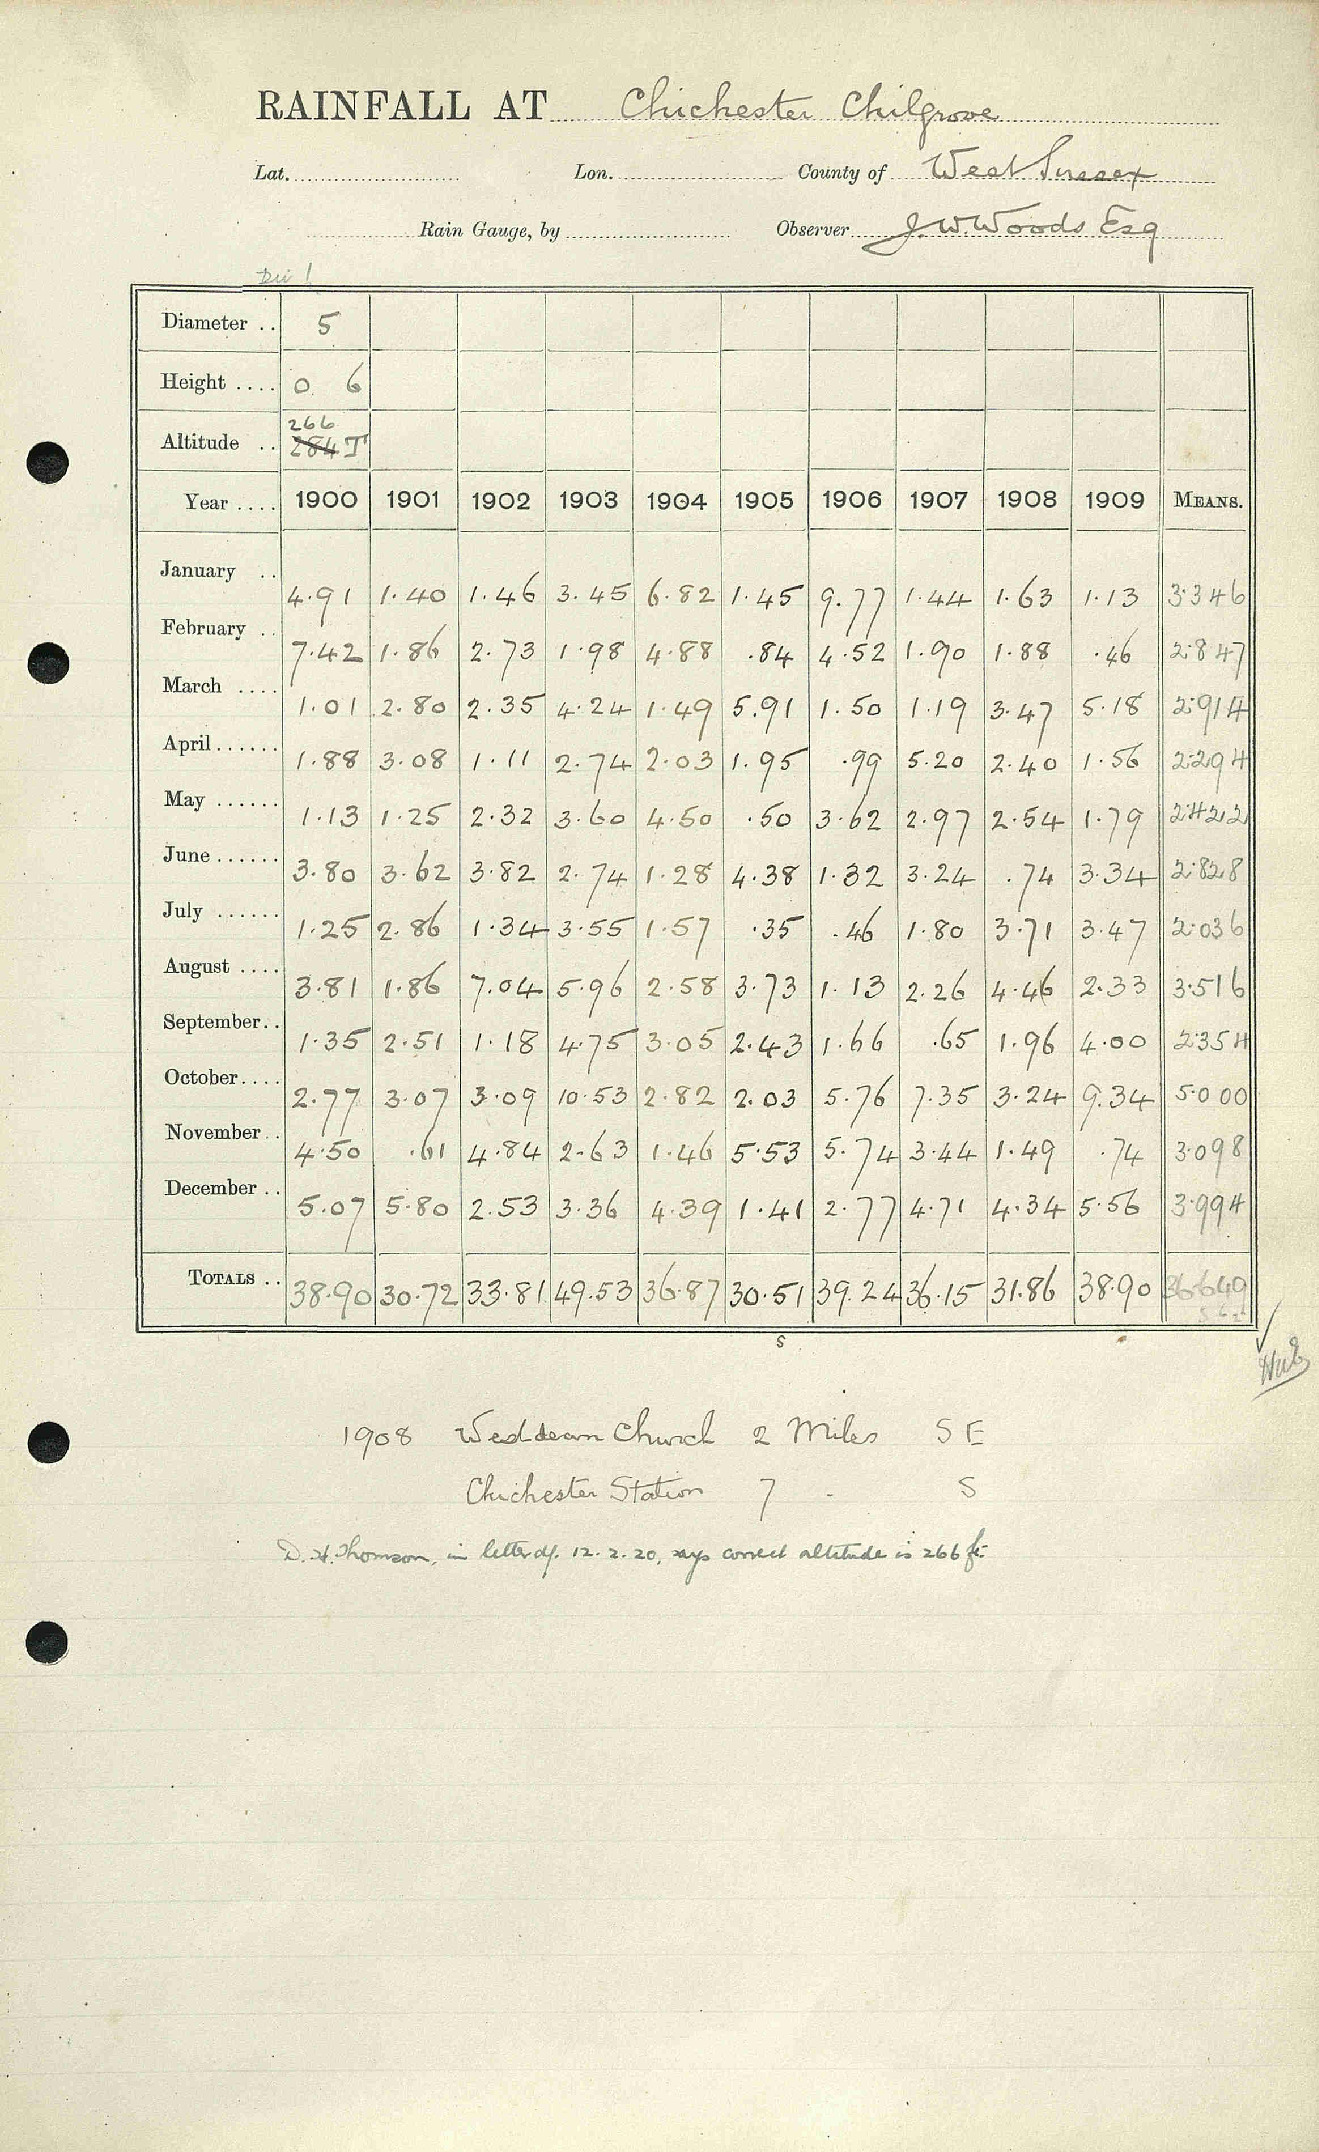 RAINFALL AT Chichester Chilgrove
Lat. Lon. County of West Sussex
Rain Gauge, by Observer J. W. Woods Esq
Diameter .. 5
Height .... 0 6
266
Altitude .. 284 T
Year .... 1900 1901 1902 1903 1904 1905 1906 1907 1908 1909 MEANS.
January .. 4.91 1.40 1.46 3.45 6.82 1.45 9.77 1.44 1.63 1.13 3.346
February .. 7.42 1.86 2.73 1.98 4.88 .84 4.52 1.90 1.88 .46 2.847
March .... 1.01 2.80 2.35 4.24 1.49 5.91 1.50 1.19 3.47 5.18 2.914
April...... 1.88 3.08 1.11 2.74 2.03 1.95 .99 5.20 2.40 1.56 2.294
May ...... 1.13 1.25 2.32 3.60 4.50 .50 3.62 2.97 2.54 1.79 2.422
June...... 3.80 3.62 3.82 2.74 1.28 4.38 1.32 3.24 .74 3.34 2.828
July ...... 1.25 2.86 1.34 3.55 1.57 .35 .46 1.80 3.71 3.47 2.036
August .... 3.81 1.86 7.04 5.96 2.58 3.73 1.13 2.26 4.46 2.33 3.516
September.. 1.35 2.51 1.18 4.75 3.05 2.43 1.66 .65 1.96 4.00 2.354
October.... 2.77 3.07 3.09 10.53 2.82 2.03 5.76 7.35 3.24 9.34 5.000
November.. 4.50 .61 4.84 2.63 1.46 5.53 5.74 3.44 1.49 .74 3.098
December .. 5.07 5.80 2.53 3.36 4.39 1.41 2.77 4.71 4.34 5.56 3.994
TOTALS .. 38.90 30.72 33.81 49.53 36.87 30.51 39.24 36.15 31.86 38.90 36.649
S
1908 Westdean Church 2 Miles SE
Chichester Station 7 - S
D. H. Thomson, in letter of. 12.2.20, says correct altitude is 266 ft.